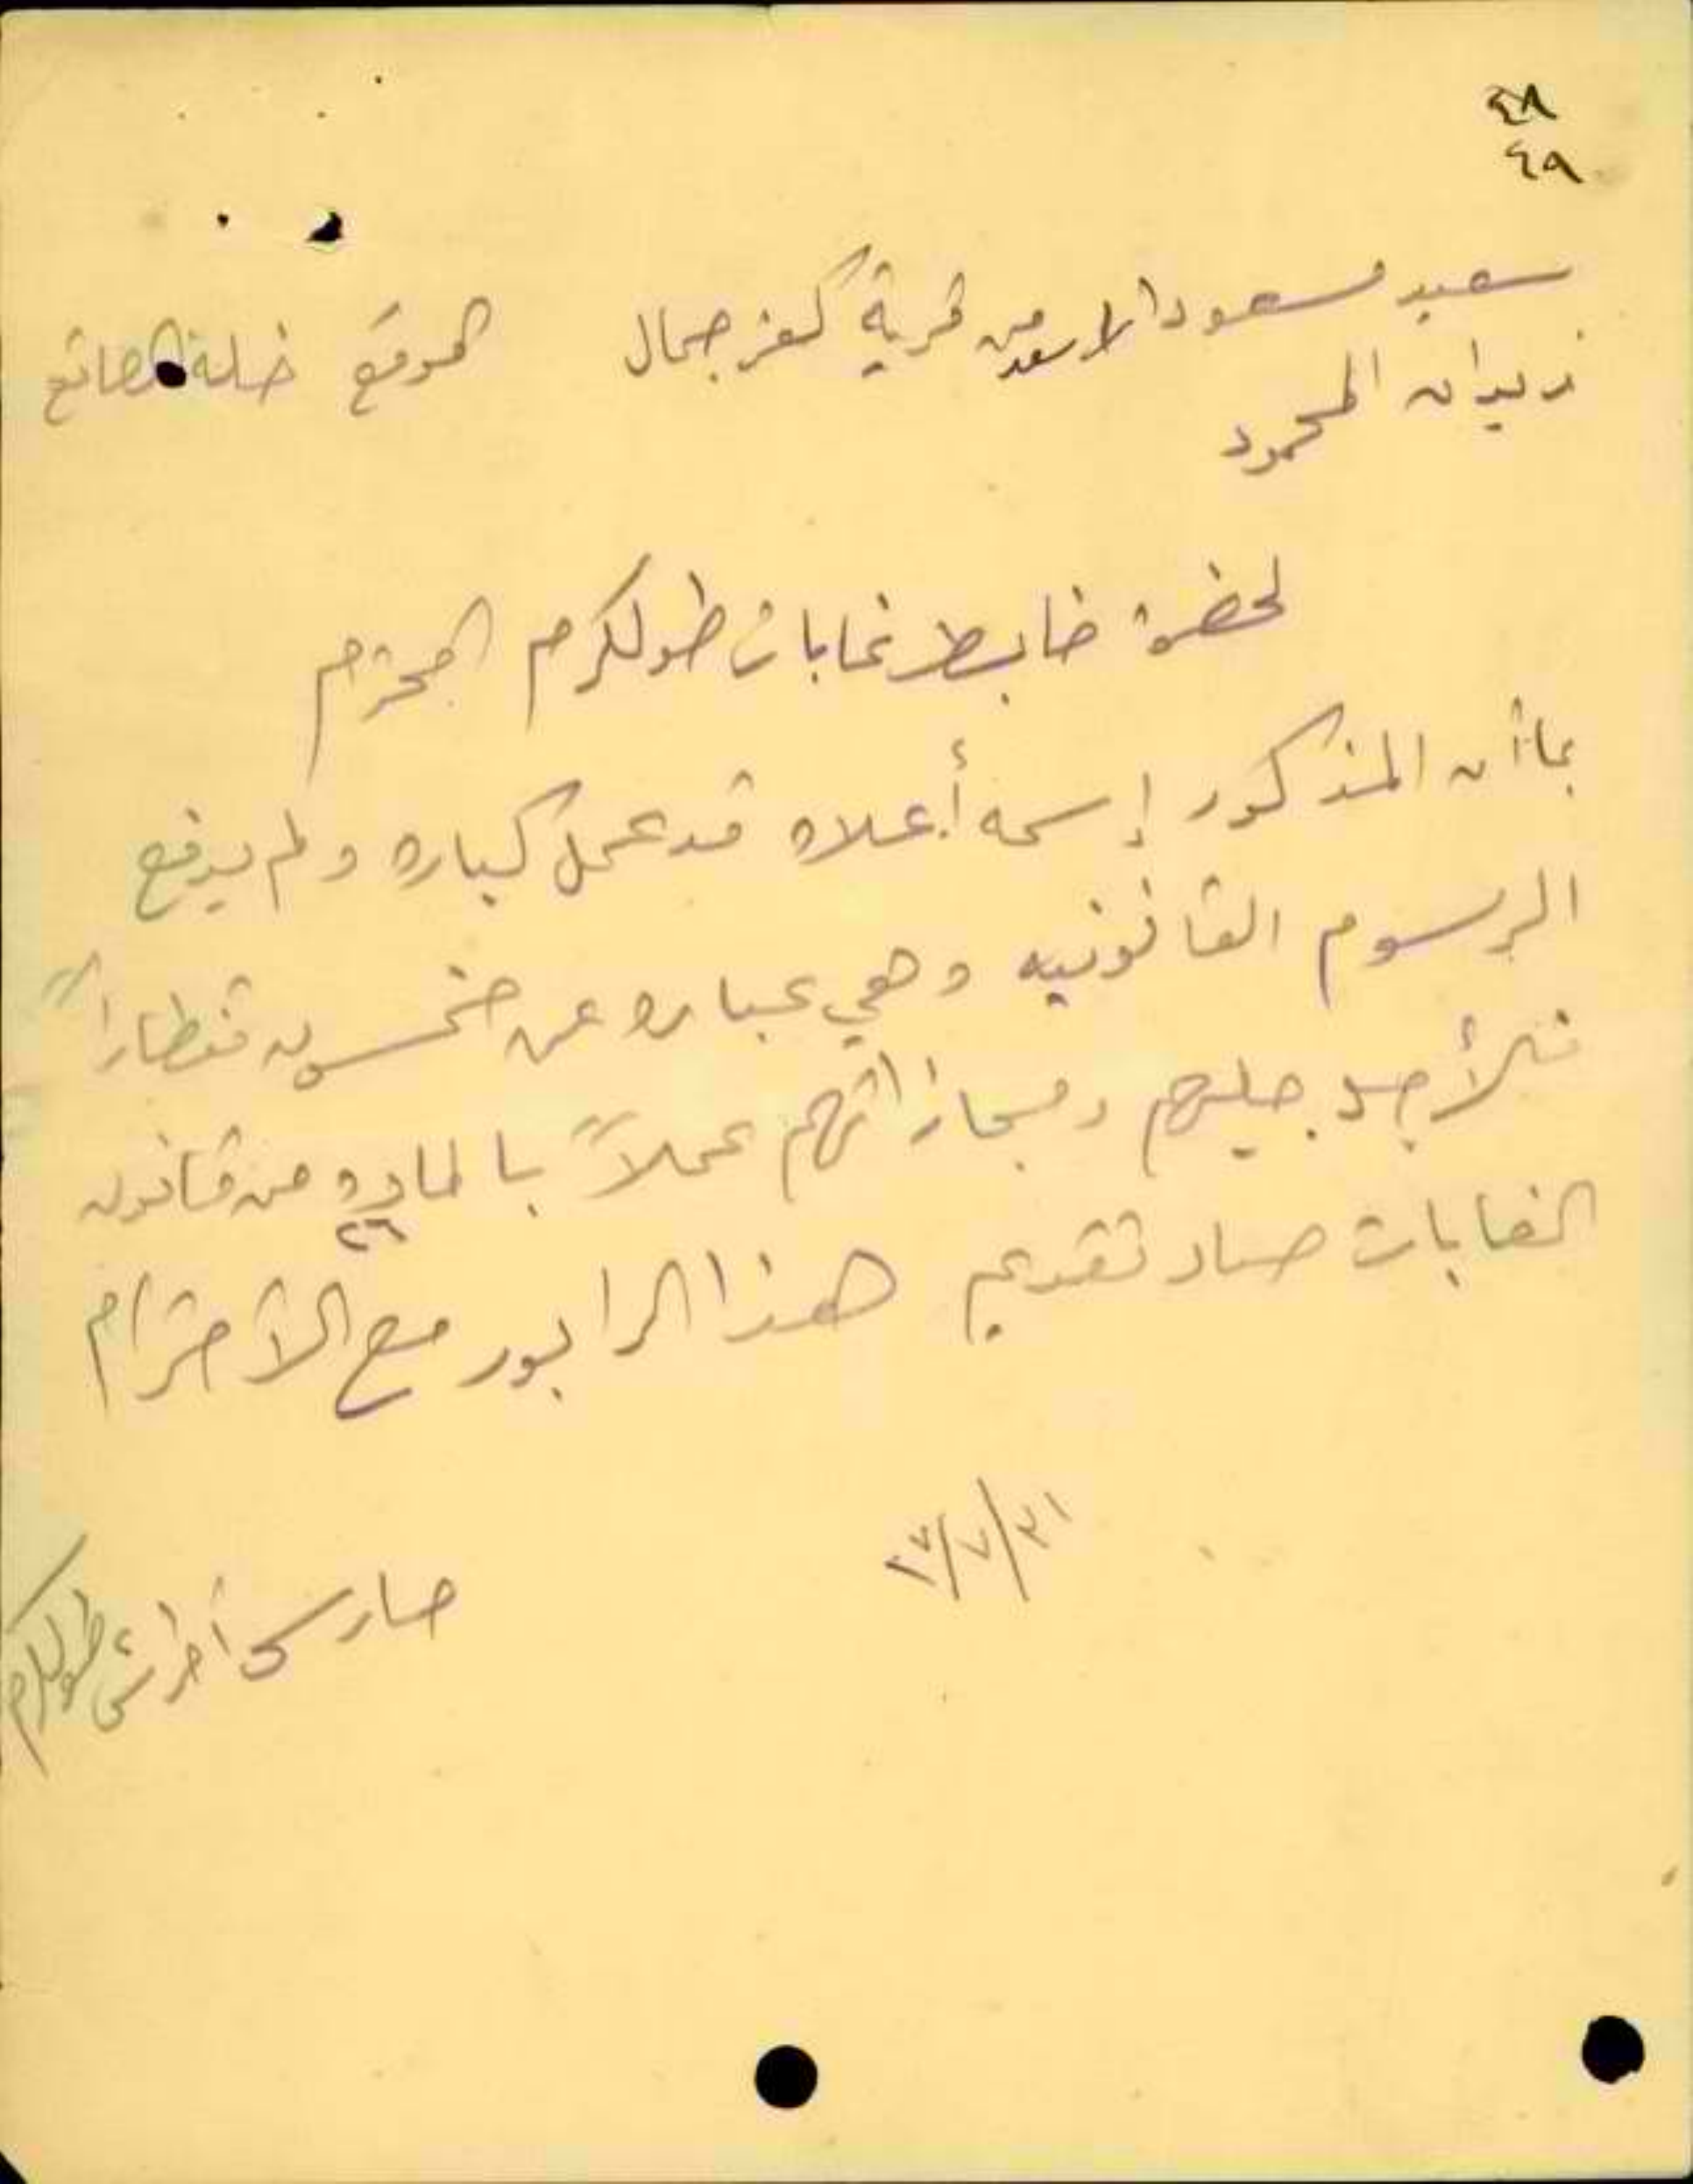 ٤٨
٤٩
سعيد مسعود الاسعد من قرية كفر جمال الموقع خلة الصائع
زيدان المحمود
لحضرة ضابط غابات طولكرم المحترم
بما أن المذكور إسمه أعلاه قد عمل كباره ولم يدفع
الرسوم القانونيه وهي عباره عن خمسون قنطاراً
فلأجل جلبهم ومجازاتهم عملاً بالماده من قانون
٢٦
الغابات صار تقديم هذا الرابور مع الأحترام
٣١/٧/٢٧
حارس أحراش طولكرم